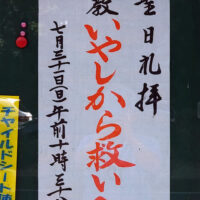 日礼拝
教 いやしから救いへ
七月三十一日(日)午前十時三十
チャイルドシート